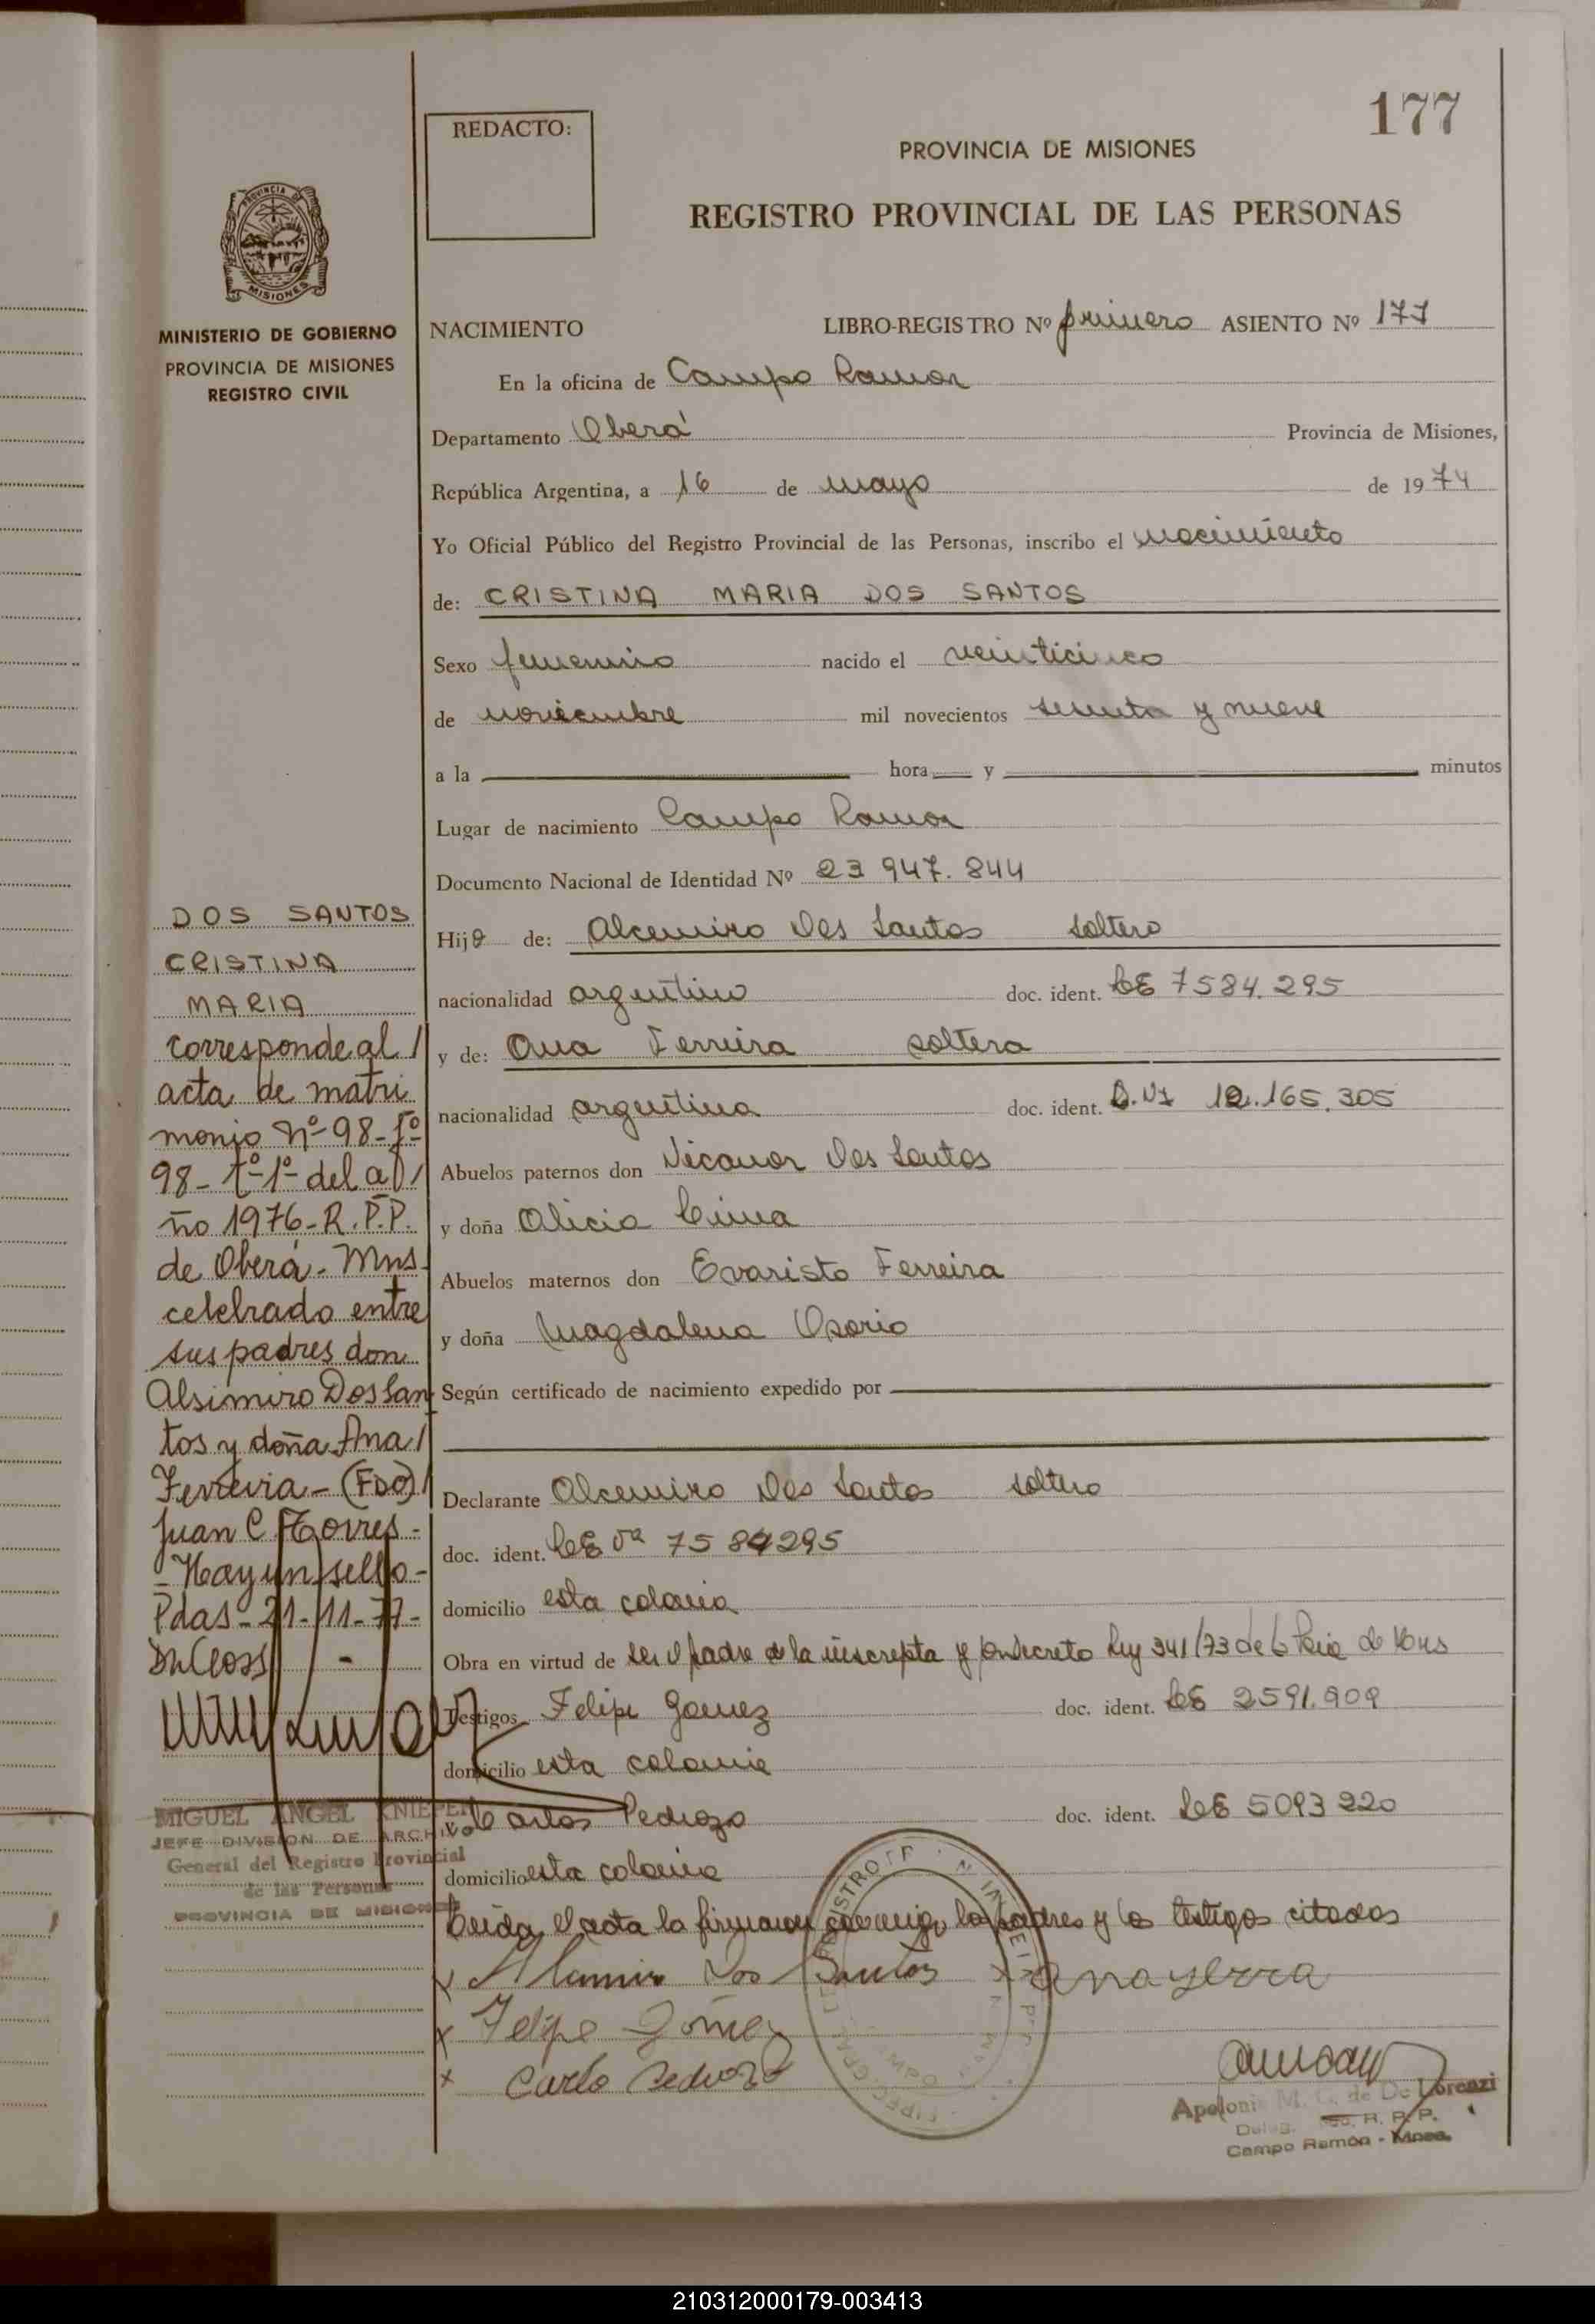 177
REDACTO:
PROVINCIA DE MISIONES
REGISTRO PROVINCIAL DE LAS PERSONAS
PROVINCIA DE
MISIONES
MINISTERIO DE GOBIERNO
PROVINCIA DE MISIONES
REGISTRO CIVIL
NACIMIENTO LIBRO-REGISTRO Nº primero ASIENTO Nº 177
En la oficina de Campo Ramon
Departamento Oberá Provincia de Misiones,
República Argentina, a 16 de mayo de 1974
Yo Oficial Público del Registro Provincial de las Personas, inscribo el nacimiento
de: CRISTINA MARIA DOS SANTOS
Sexo femenino nacido el veinticinco
de noviembre mil novecientos setenta y nueve
a la hora y minutos
Lugar de nacimiento Campo Ramon
Documento Nacional de Identidad Nº 23 947.844
Hija de: Alcemiro Dos Santos soltero
nacionalidad argentino doc. ident. LE 7584.295
y de: Ana Ferreira soltera
nacionalidad argentina doc. ident. D.NI 12.165.305
Abuelos paternos don Nicanor Dos Santos
y doña Alicia Lima
Abuelos maternos don Evaristo Ferreira
y doña Magdalena Osorio
Según certificado de nacimiento expedido por
Declarante Alcemiro Dos Santos soltero
doc. ident. LE 7584295
domicilio esta colonia
Obra en virtud de ser el padre de la inscripta y Decreto Ley 341/73 de la Pcia de Mns
Testigos Felipe Gomez doc. ident. LE 2591.909
domicilio esta colonia
y Carlos Pedrozo doc. ident. LE 5093220
domicilio esta colonia
Leida el acta la firman conmigo los padres y los testigos citados
x Alcemiro Dos Santos x
x Felipe Gómez
x Carlo Pedrozo
Apolonia M. G. de De Lorenzi
R. P. P.
Campo Ramón - Mnes.
DOS SANTOS
CRISTINA
MARIA
Corresponde al /
acta de matri
monio Nº 98- Fº
98- Tº 1º del a /
ño 1976- R.P.P.
de Oberá- Mns-
celebrado entre
sus padres don
Alsimiro Dos San
tos y doña Ana /
Ferreira - (FDO) /
Juan C Torres -
- Hay un sello -
Pdas - 21-11-77-
MIGUEL ANGEL KNIEPER
JEFE DIVISION DE ARCHIVO
General del Registro Provincial
de las Personas
PROVINCIA DE MISIONES
210312000179-003413